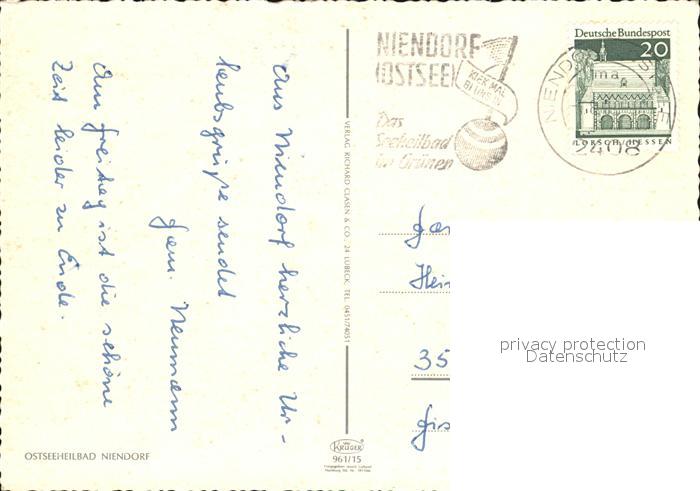 Aus Niendorf herzliche Ur-
laubsgrüße sendet
Fam. Neumann
Am Freitag ist die schöne
Zeit leider zu Ende.
OSTSEEHEILBAD NIENDORF
VERLAG RICHARD CLASEN & CO. 24 LÜBECK, TEL. 0451/74051
KRÜGER
961/15
NIENDORF
(OSTSEE)
KIEK MAL
BI UNS IN
Das
Seeheilbad
im Grünen
2408
Deutsche Bundespost
20
LORSCH/HESSEN
35
privacy protection
Datenschutz